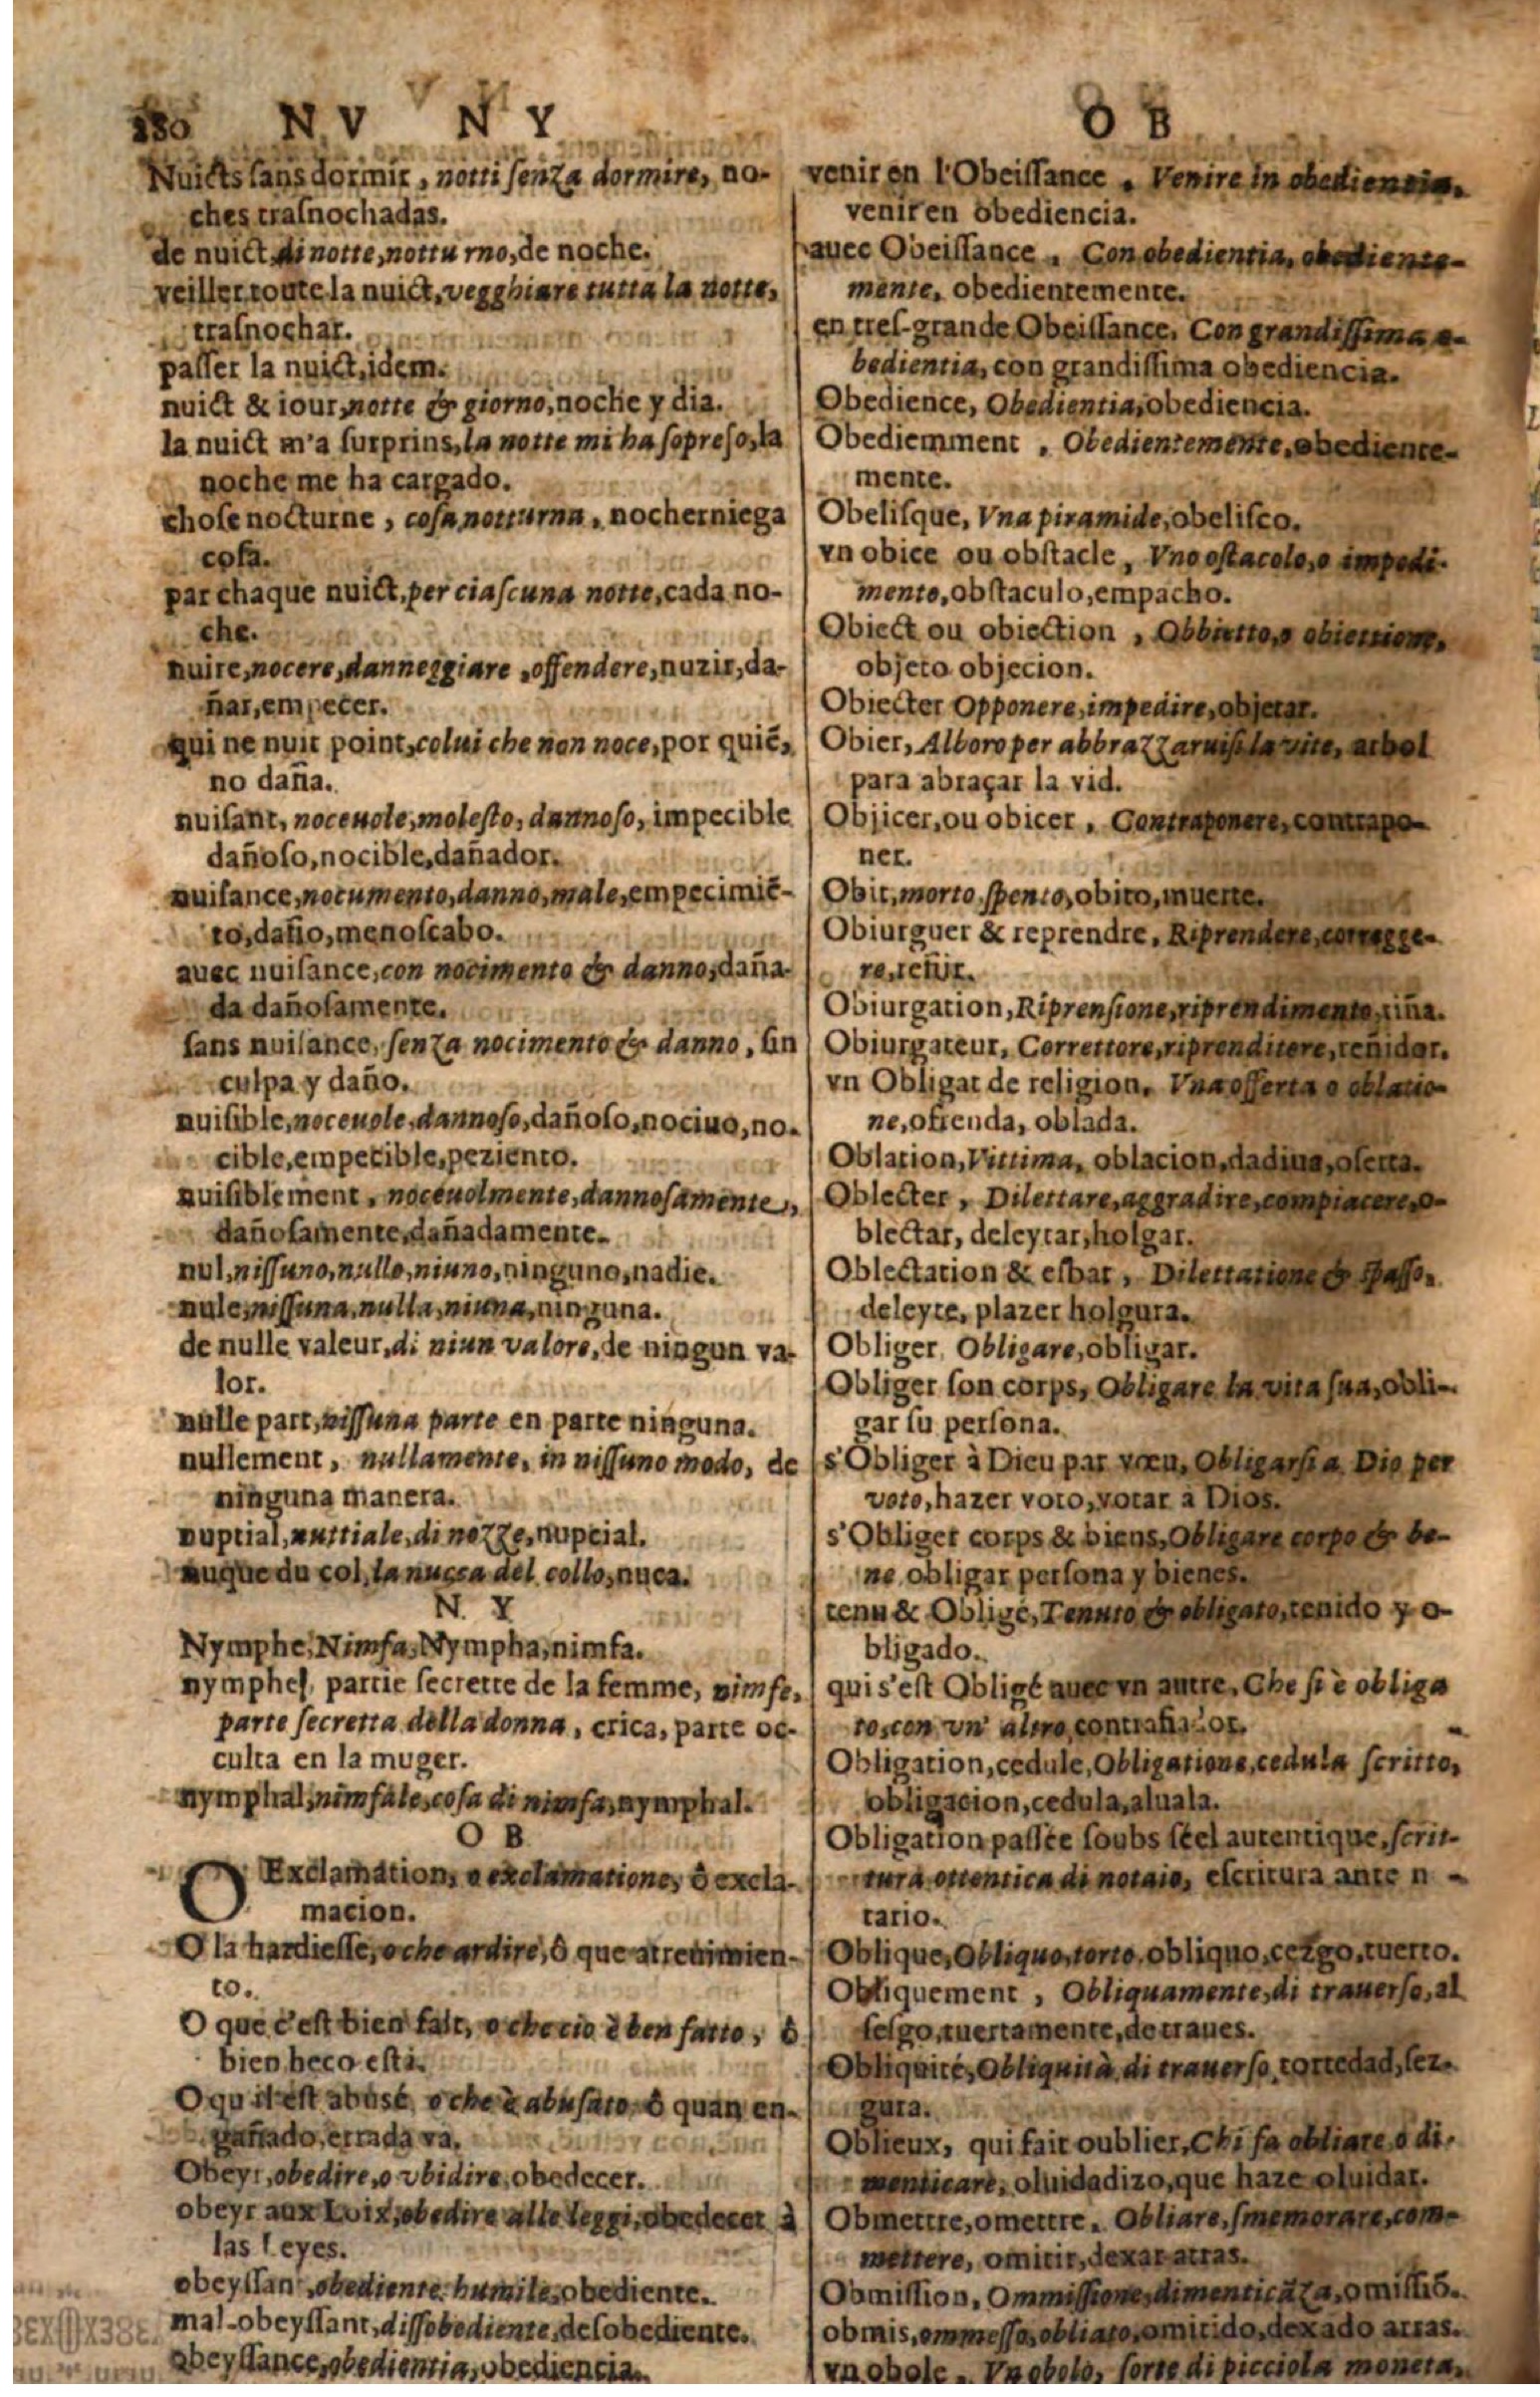 280 NV NY
Nuicts sans dormir, notti senza dormire, no-
ches trasnochadas.
de nuict, di notte, notturno, de noche.
veiller toute la nuict, vegghiare tutta la notte,
trasnochar.
passer la nuict, idem.
nuict & iour, notte & giorno, noche y dia.
la nuict m'a surprins, la notte mi ha sopreso, la
noche me ha cargado.
chose nocturne, cosa notturna, nocherniega
cosa.
par chaque nuict, per ciascuna notte, cada no-
che.
nuire, nocere, danneggiare, offendere, nuzir, da-
ñar, empecer.
qui ne nuit point, colui che non noce, por quiẽ,
no daña.
nuisant, noceuole, molesto, dannoso, impecible
dañoso, nocible, dañador.
nuisance, nocumento, danno, male, empecimiẽ-
to, daño, menoscabo.
auec nuisance, con nocimento & danno, daña-
da dañosamente.
sans nuisance, senza nocimento & danno, sin
culpa y daño.
nuisible, noceuole, dannoso, dañoso, nociuo, no-
cible, empecible, peziento.
nuisiblement, noceuolmente, dannosamente,
dañosamente, dañadamente.
nul, nissuno, nullo, niuno, ninguno, nadie.
nule, nissuna, nulla, niuna, ninguna.
de nulle valeur, di niun valore, de ningun va-
lor.
nulle part, nissuna parte en parte ninguna.
nullement, nullamente, in nissuno modo, de
ninguna manera.
nuptial, nuttiale, di nozze, nupcial.
nuque du col, la nucca del collo, nuca.
N Y
Nymphe, Nimfa, Nympha, nimfa.
nymphes, partie secrette de la femme, nimfe,
parte secretta della donna, crica, parte oc-
culta en la muger.
nymphal, nimfale, cosa di nimfa, nymphal.
O B
O Exclamation, o exclamatione, ô excla-
macion.
O la hardiesse, o che ardire, ô que atreuimien-
to.
O que c'est bien fait, o che cio è ben fatto, ô
bien heco está.
O qu'il est abusé, o che è abusato, ô quan en-
gañado, errada va.
Obeyr, obedire, o vbidire, obedecer.
obeyr aux Loix, obedire alle leggi, obedecer à
las Leyes.
obeyssant, obediente humile, obediente.
mal-obeyssant, dissobediente, desobediente.
obeyssance, obedientia, obediencia.
O B
venir en l'Obeissance. Venire in obedientia,
venir en obediencia.
auec Obeissance, Con obedientia, obediente-
mente, obedientemente.
en tres-grande Obeissance, Con grandissima o-
bedientia, con grandissima obediencia.
Obedience, Obedientia, obediencia.
Obediemment, Obedientemente, obediente-
mente.
Obelisque, Vna piramide, obelisco.
vn obice ou obstacle, Vno ostacolo, o impedi-
mento, obstaculo, empacho.
Obiect ou obiection, Obbietto, o obiettione,
objeto objecion.
Obiecter Opponere, impedire, objetar.
Obier, Alboro per abbrazzaruisi la vite, arbol
para abraçar la vid.
Objicer, ou obicer, Contraponere, contrapo-
ner.
Obit, morto spento, obito, muerte.
Obiurguer & reprendre, Riprendere, corregge-
re, reñir.
Obiurgation, Riprensione, riprendimento, riña.
Obiurgateur, Correttore, riprenditore, reñidor.
vn Obligat de religion. Vna offerta o oblatio-
ne, ofrenda, oblada.
Oblation, Vittima, oblacion, dadiua, oferta.
Oblecter, Dilettare, aggradire, compiacere, o-
blectar, deleytar, holgar.
Oblectation & esbat, Dilettatione & spasso,
deleyte, plazer holgura.
Obliger, Obligare, obligar.
Obliger son corps, Obligare la vita sua, obli-
gar su persona.
s'Obliger à Dieu par vœu, Obligarsi a Dio per
voto, hazer voto, votar a Dios.
s'Obliger corps & biens, Obligare corpo & be-
ne obligar persona y bienes.
tenu & Obligé, Tenuto & obligato, tenido y o-
bligado.
qui s'est Obligé auec vn autre, Che si è obliga
to, con vn' altro, contrafiador.
Obligation, cedule, Obligatione, cedula scritto,
obligacion, cedula, aluala.
Obligation passée soubs séel autentique, scrit-
tura ottentica di notaio, escritura ante n -
tario.
Oblique, Obliquo, torto, obliquo, cezgo, tuerto.
Obliquement, Obliquamente, di trauerso, al
sesgo, tuertamente, de traues.
Obliquité, Obliquità di trauerso, tortedad, sez-
gura.
Oblieux, qui fait oublier, Chi fa obliare o di-
menticare, oluidadizo, que haze oluidar.
Obmettre, omettre. Obliare, smemorare, com-
mettere, omitir, dexar atras.
Obmission, Ommissione, dimenticãza, omissiõ.
obmis, ommesso, obliato, omitido, dexado atras.
vn obole, Vn obolo, sorte di picciola moneta,